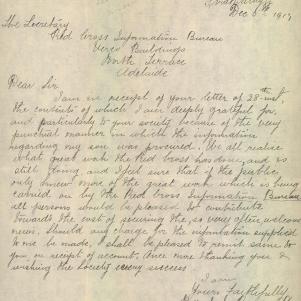 Dec 6th 1917
The Secretary
Red Cross Information Bureau
Verco Buildings
North Terrace
Adelaide
Dear Sir
I am in receipt of your letter of 28th inst,
the contents of which I am deeply grateful for,
and particularly to your society because of the very
punctual manner in which the information
regarding my son was procured. We all realise
what great work the Red Cross has done, and is
still doing, and I feel sure that if the public
only knew more of the great work which is being
carried on by the Red Cross Information Bureau
all persons would be pleased to contribute
towards the cost of securing the, so very often, welcome
news. Should any charge for the information supplied
to me be made, I shall be pleased to remit same to
you, on receipt of account. Once more thanking you &
wishing the Society every success
I am
Yours faithfully